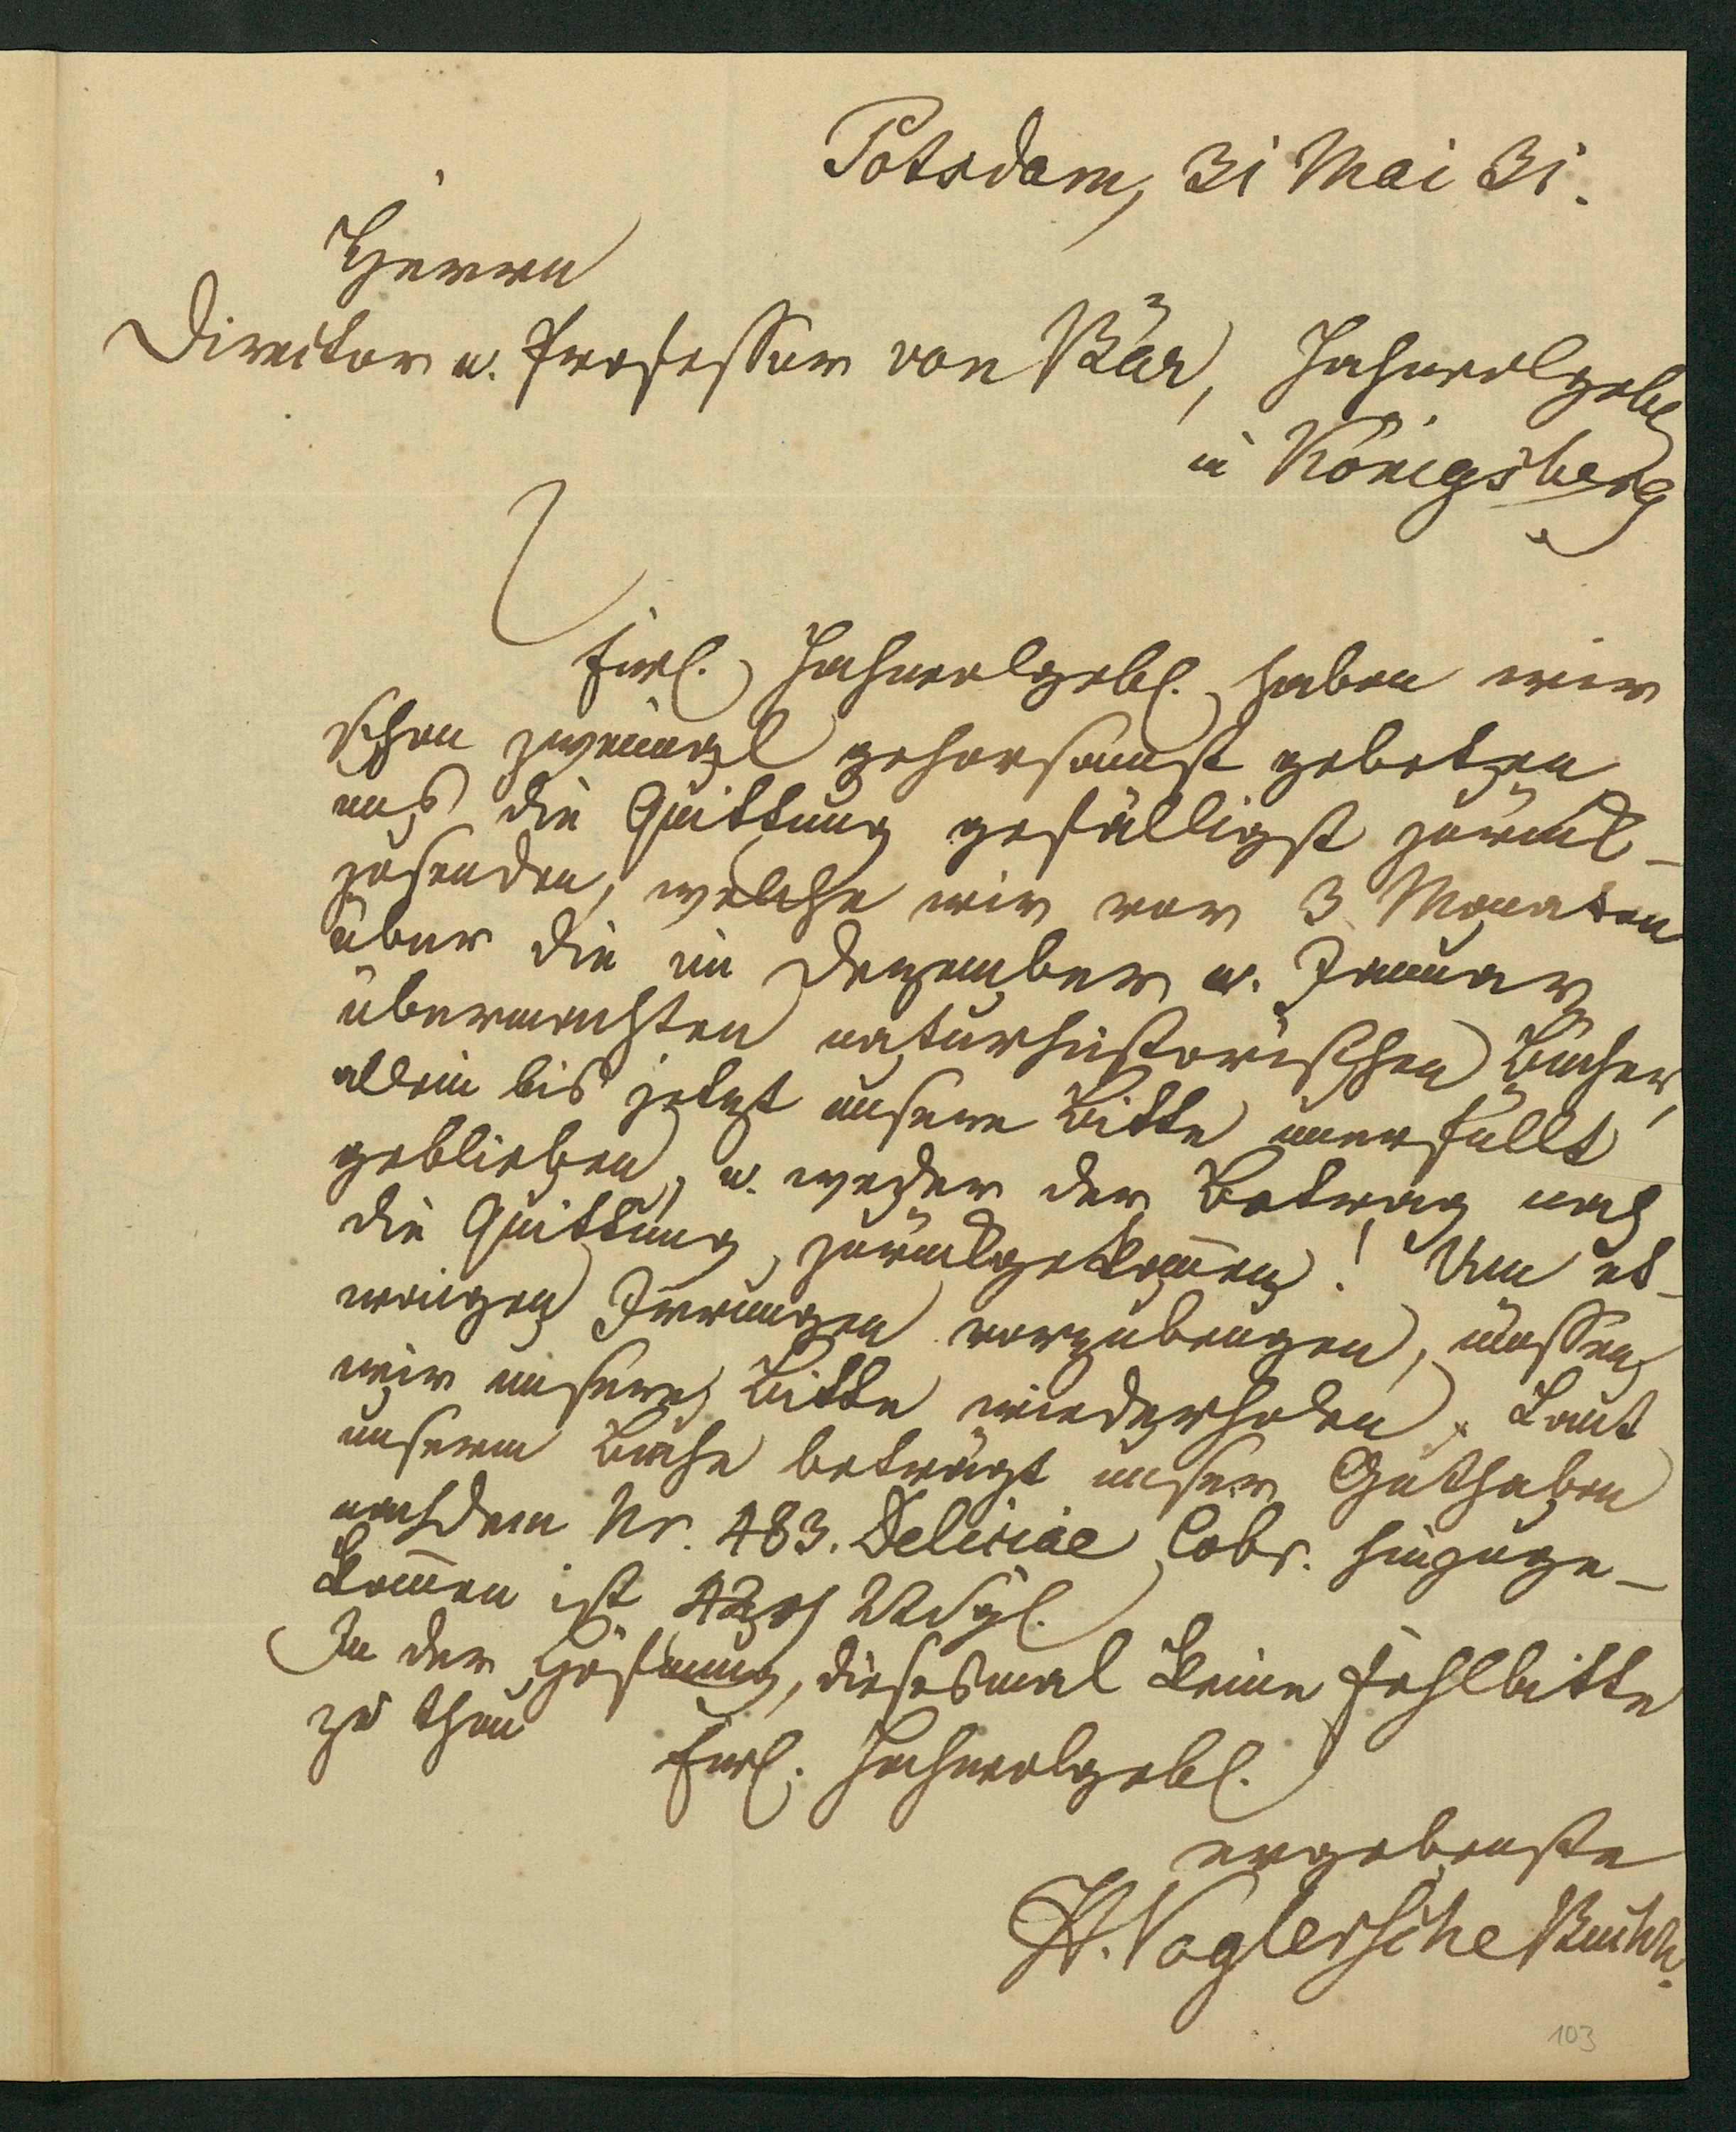 Potsdam, 31 Mai 31.
Herrn
Director u. Professor von Bär, Hochwolgeb.
in Königsberg
Ewl. Hochwolgebl. haben wir
schon zweimal gehorsamst gebeten
uns die Quittung gefälligst zurück-
zusenden, welche wir vor 3 Monaten
über die im Dezember u. Januar
übermachten naturhistorischen Bücher,
allein bis jetzt unsere Bitte unerfüllt
geblieben, u. weder der Betrag noch
die Quittung zurückgekom̄en! Um et-
wanigen Irrungen vorzubeugen, müssen
wir unsere Bitte wiederholen. Laut
unserm Buche beträgt unser Guthaben
nachdem Nr. 483. Deliciae Cobr. hinzuge-
kom̄en ist 42 rh 22 Sgl.
In der Hofnung, diesesmal keine Fehlbitte
zu thun
Ewl. Hochwolgebl.
ergebenste
H. Voglersche Buchh.
103